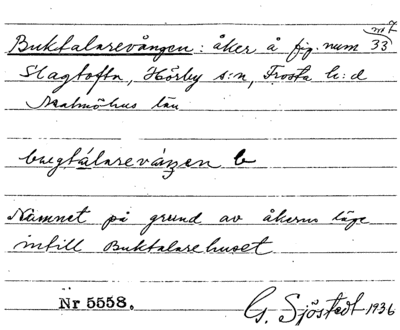 Buktalarevången: åker å fig. num 33 m 7
Slagtofta, Hörby s:n, Frosta h:d
Malmöhus län
bugtálarevánen b
Namnet på grund av åkerns läge
intill Buktalarehuset
Nr 5558.
G. Sjöstedt 1936